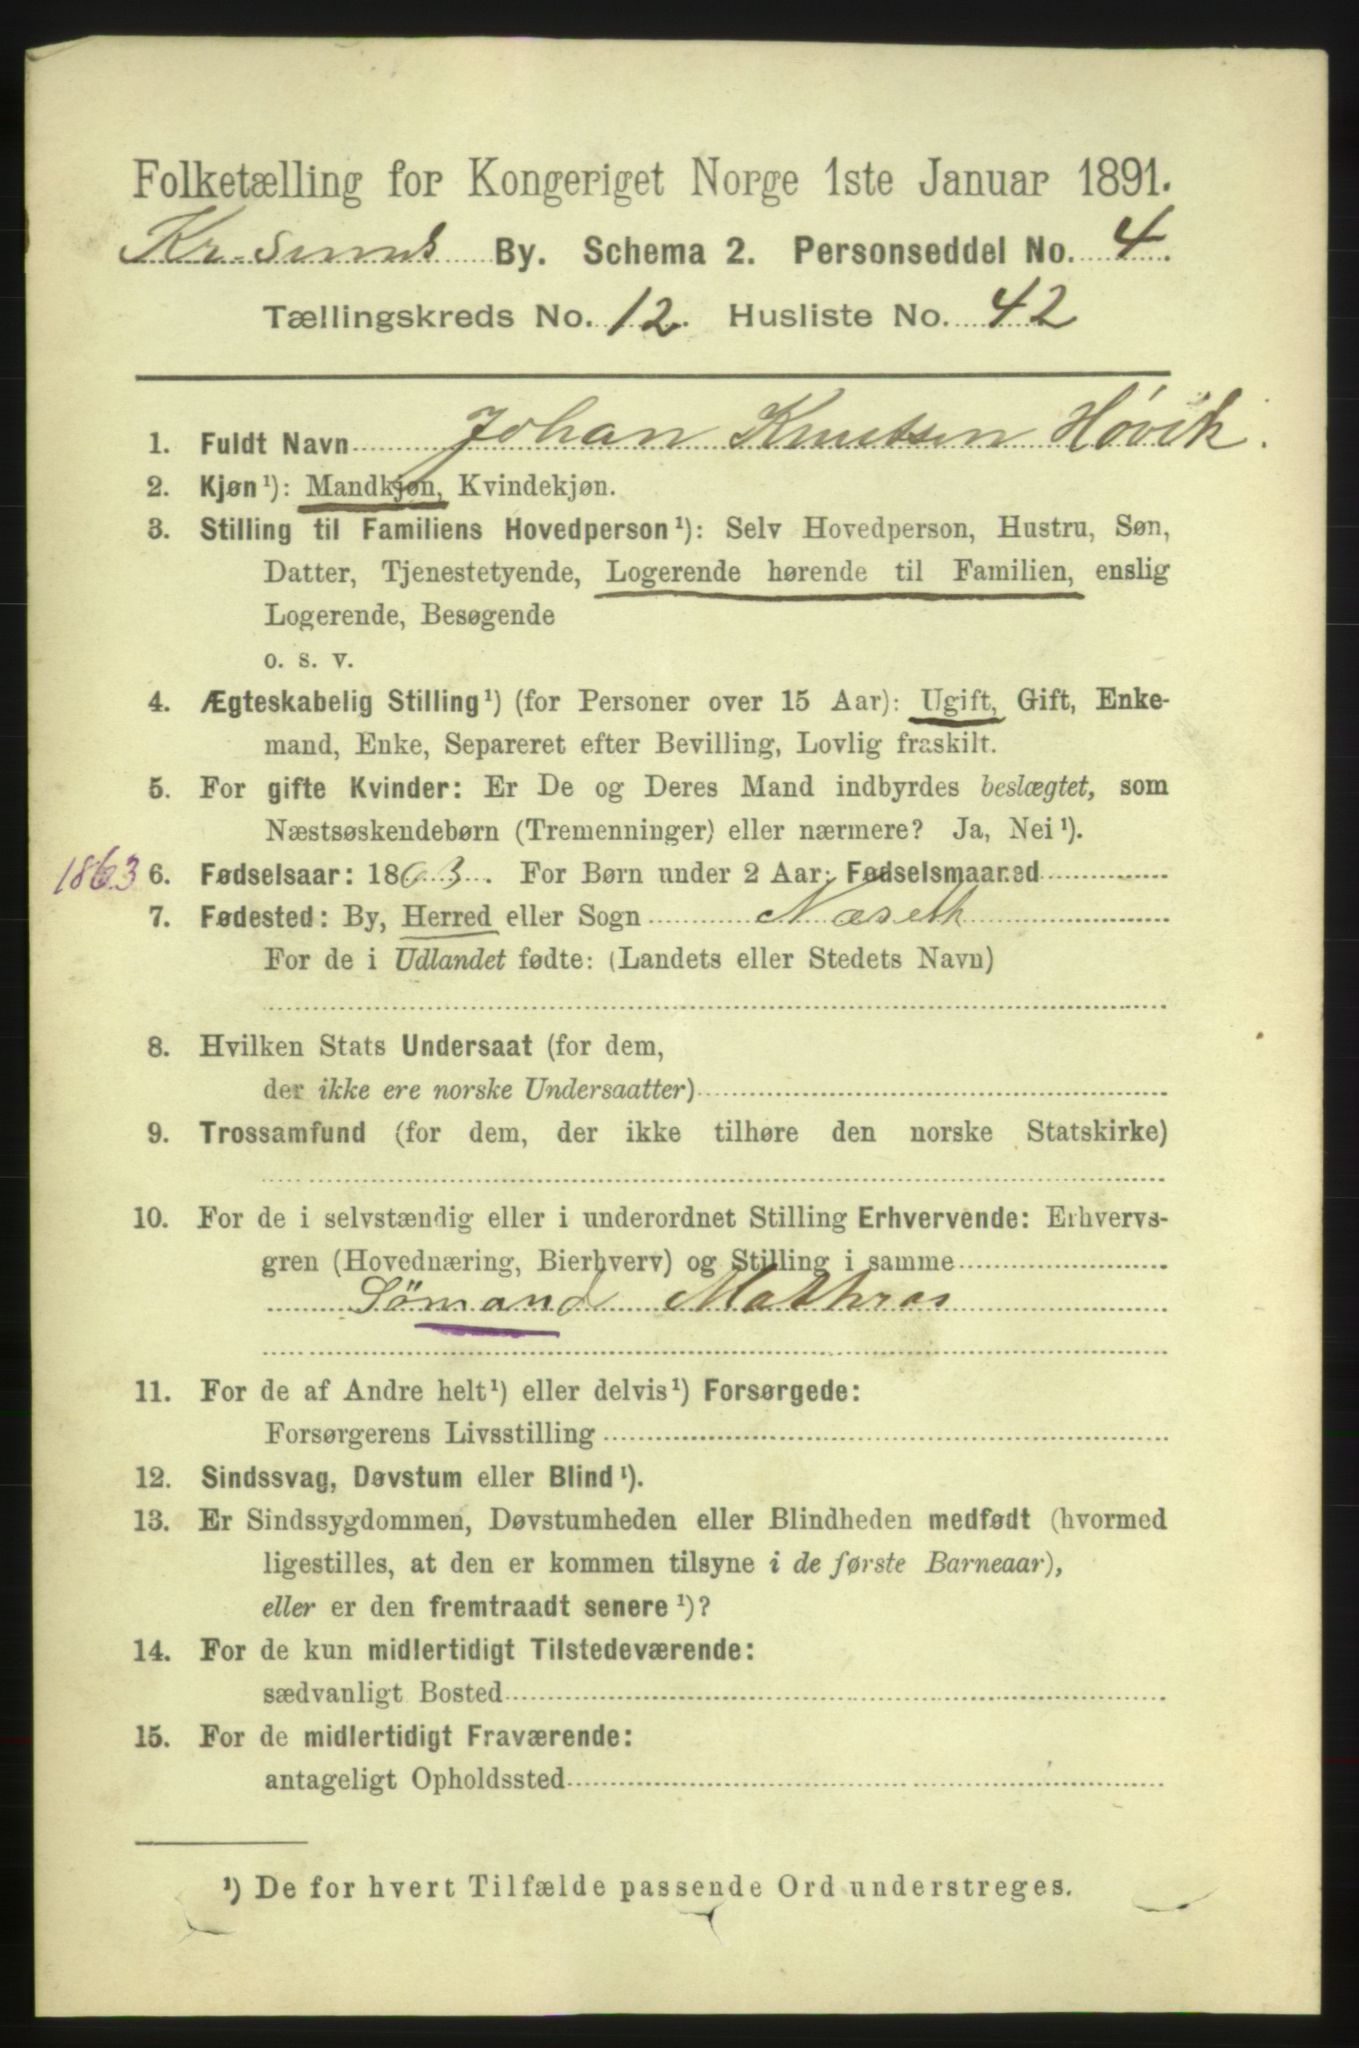 Folketælling for Kongeriget Norge 1ste Januar 1891.
Kr.sunds By. Schema 2. Personseddel No. 4.
Tællingskreds No. 12. Husliste No. 42
1. Fuldt Navn Johan Knutsen Høvik.
2. Kjøn¹): Mandkjøn, Kvindekjøn.
3. Stilling til Familiens Hovedperson¹): Selv Hovedperson, Hustru, Søn,
Datter, Tjenestetyende, Logerende hørende til Familien, enslig
Logerende, Besøgende
o. s. v.
4. Ægteskabelig Stilling¹) (for Personer over 15 Aar): Ugift, Gift, Enke-
mand, Enke, Separeret efter Bevilling, Lovlig fraskilt.
5. For gifte Kvinder: Er De og Deres Mand indbyrdes beslægtet, som
Næstsøskendebørn (Tremenninger) eller nærmere? Ja, Nei¹).
1863 6. Fødselsaar: 1863. For Børn under 2 Aar: Fødselsmaaned
7. Fødested: By, Herred eller Sogn Næseth
For de i Udlandet fødte: (Landets eller Stedets Navn)
8. Hvilken Stats Undersaat (for dem,
der ikke ere norske Undersaatter)
9. Trossamfund (for dem, der ikke tilhøre den norske Statskirke)
10. For de i selvstændig eller i underordnet Stilling Erhvervende: Erhvervs-
gren (Hovednæring, Bierhverv) og Stilling i samme
Sømand Mathros
11. For de af Andre helt¹) eller delvis¹) Forsørgede:
Forsørgerens Livsstilling
12. Sindssvag, Døvstum eller Blind¹).
13. Er Sindssygdommen, Døvstumheden eller Blindheden medfødt (hvormed
ligestilles, at den er kommen tilsyne i de første Barneaar),
eller er den fremtraadt senere¹)?
14. For de kun midlertidigt Tilstedeværende:
sædvanligt Bosted
15. For de midlertidigt Fraværende:
antageligt Opholdssted
¹) De for hvert Tilfælde passende Ord understreges.